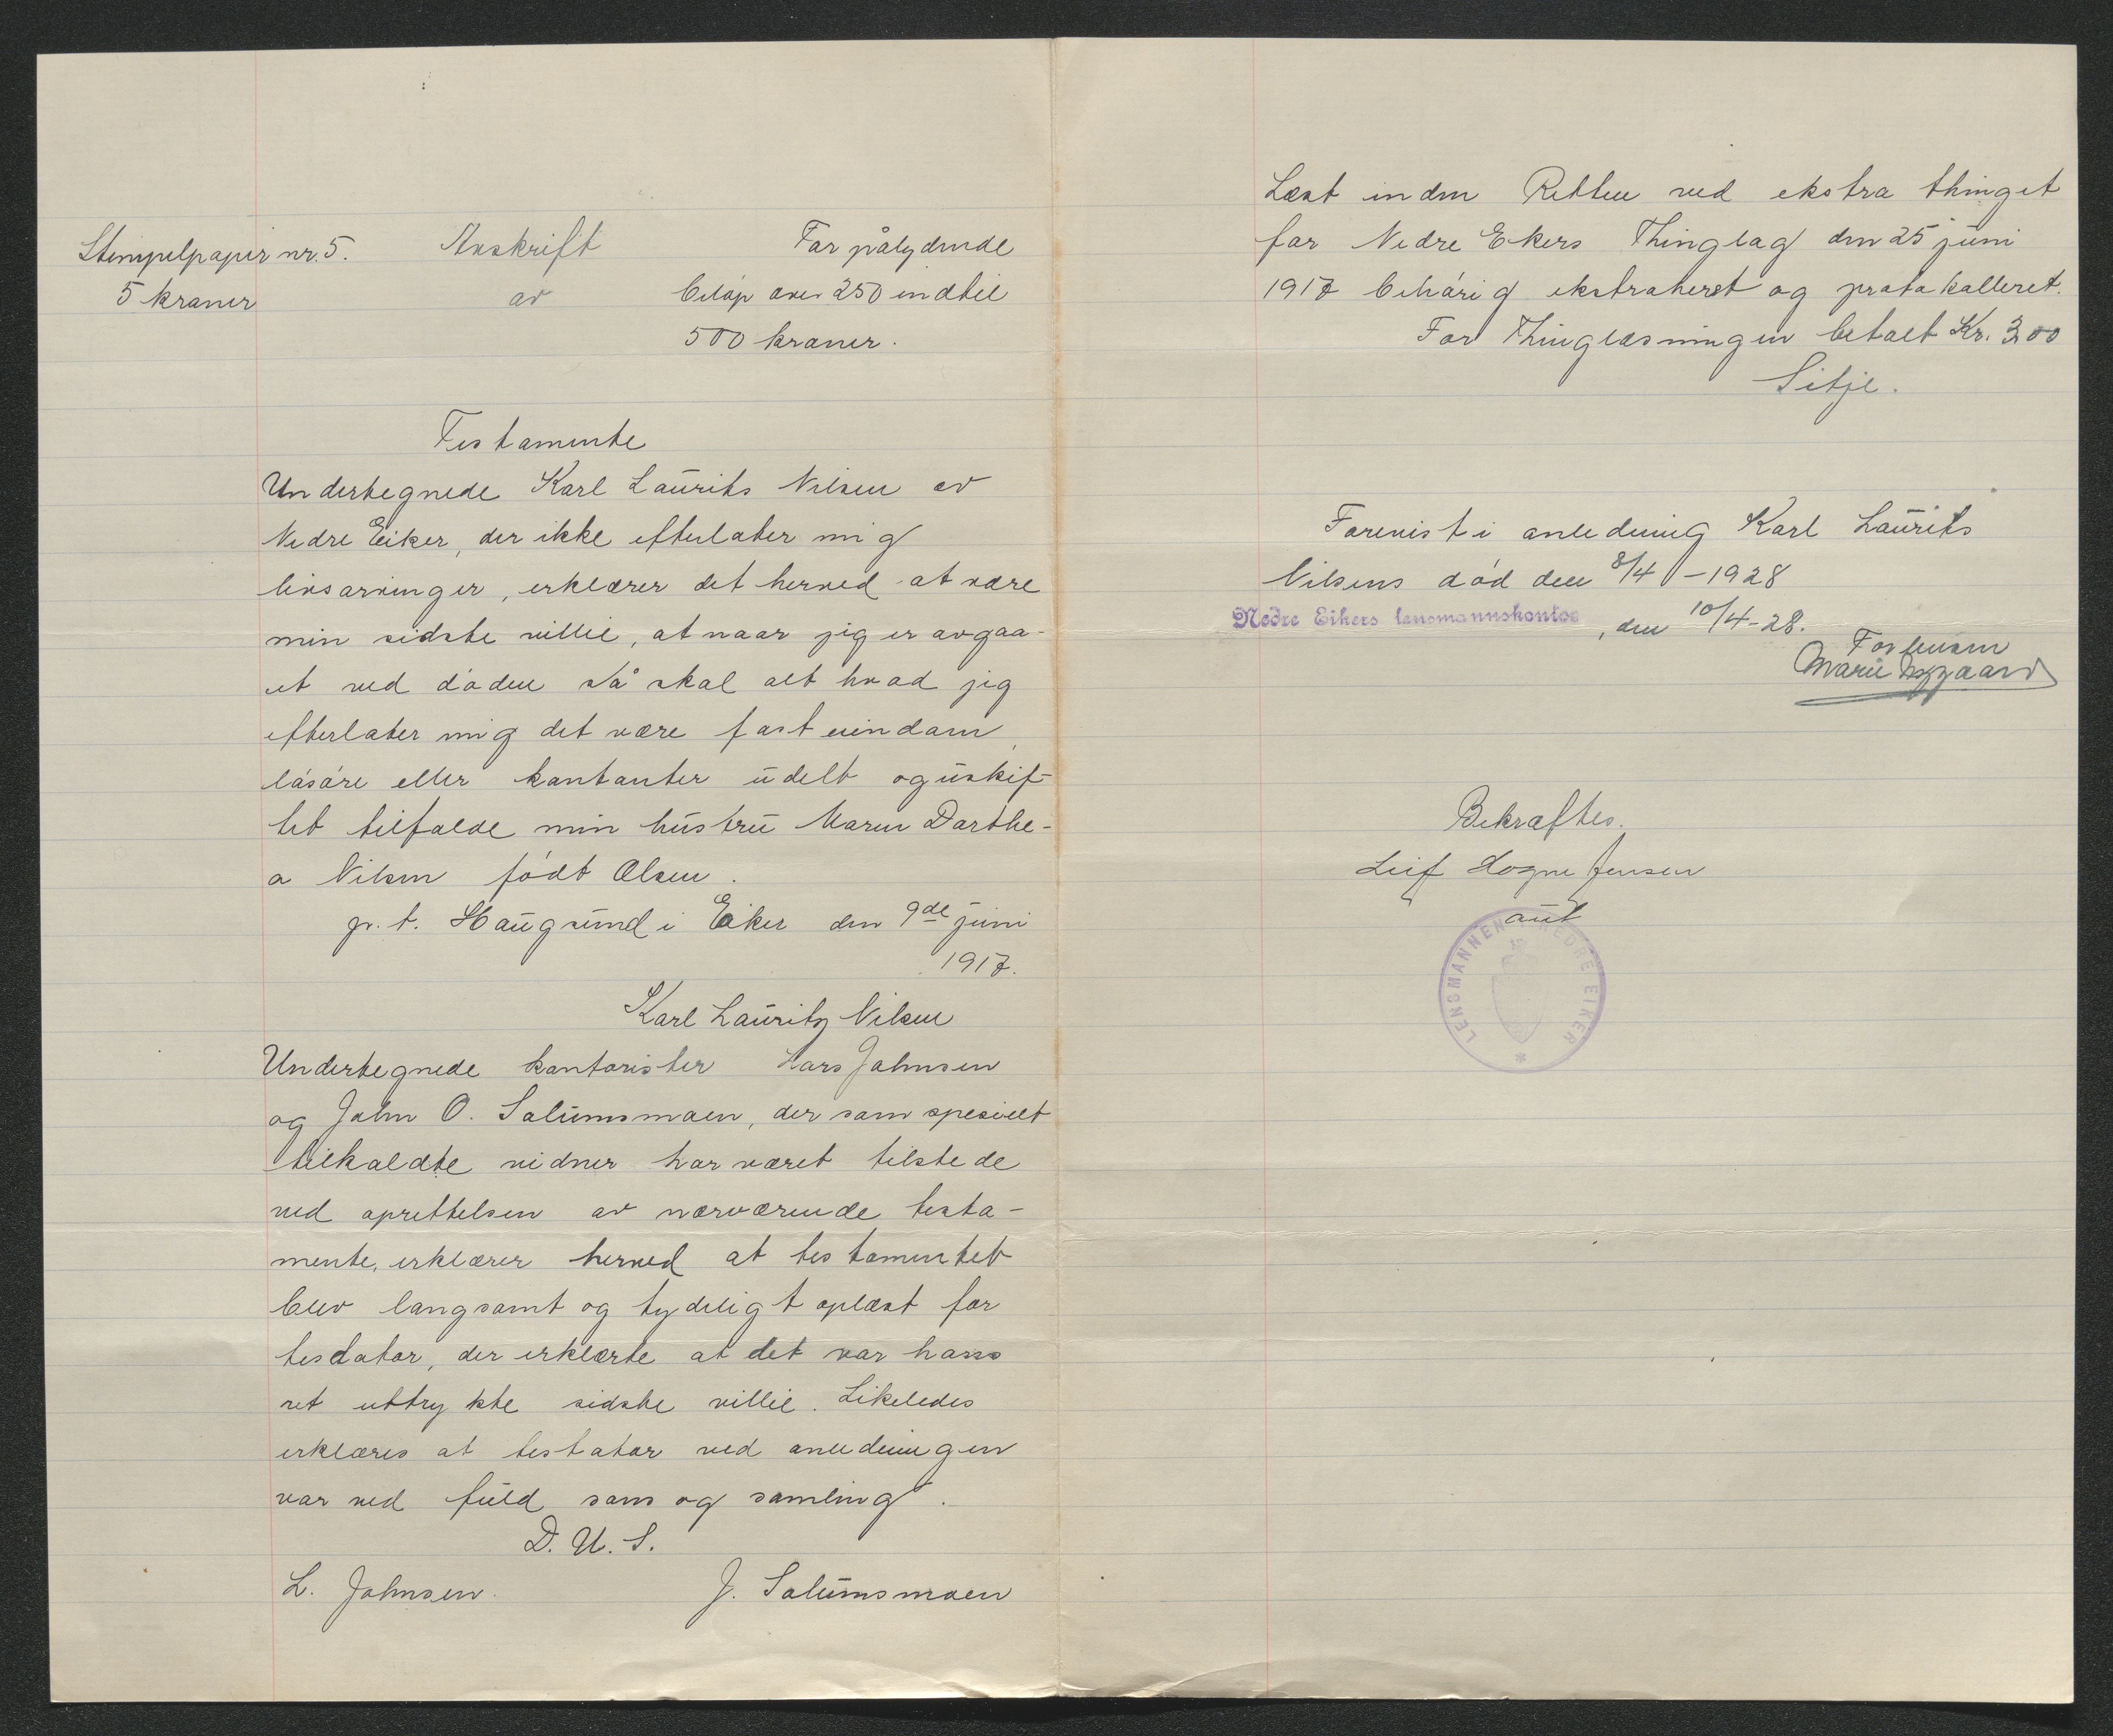 Stempelpapir nr. 5.
5 kroner
Avskrift
av
For pålydende
beløp over 250 indtil
500 kroner.
Testamente
Undertegnede Karl Laurits Nilsen av
Nedre Eiker, der ikke efterlater mig
livsarvinger, erklærer det herved at være
min sidste villie, at naar jeg er avgaa-
et ved døden så skal alt hvad jeg
efterlater mig det være fast eiendom,
løsøre eller kontanter udelt og uskif-
tet tilfalde min hustru Maren Dorthe-
a Nilsen født Olsen.
p. t. Haugsund i Eiker den 9de juni
1917.
Karl Lauritz Nilsen
Undertegnede kontorister Lars Johnsen
og John O. Solumsmoen, der som spesielt
tilkaldte vidner har været tilstede
ved oprettelsen av nærværende testa-
mente, erklærer herved at testamentet
blev langsomt og tydeligt oplæst for
testator, der erklærte at det var hans
ret uttrykte sidste villie. Likeledes
erklæres at testator ved anledningen
var ved fuld sans og samling.
D. U. S.
L. Johnsen. J. Solumsmoen
Læst inden Retten ved ekstra thinget
for Nedre Ekers Thinglag den 25 juni
1917 behørig ekstraheret og protokolleret.
For Thinglæsningen betalt Kr. 300
Sitje.
Forevist i anledning Karl Laurits
Nilsens død den 8/4 - 1928
Nedre Eikers lensmannskontor, den 10/4-28.
For lensm
Marie
Bekræftes.
Leif Hogne Jensen
aut
LENSMANNEN I NEDRE EIKER